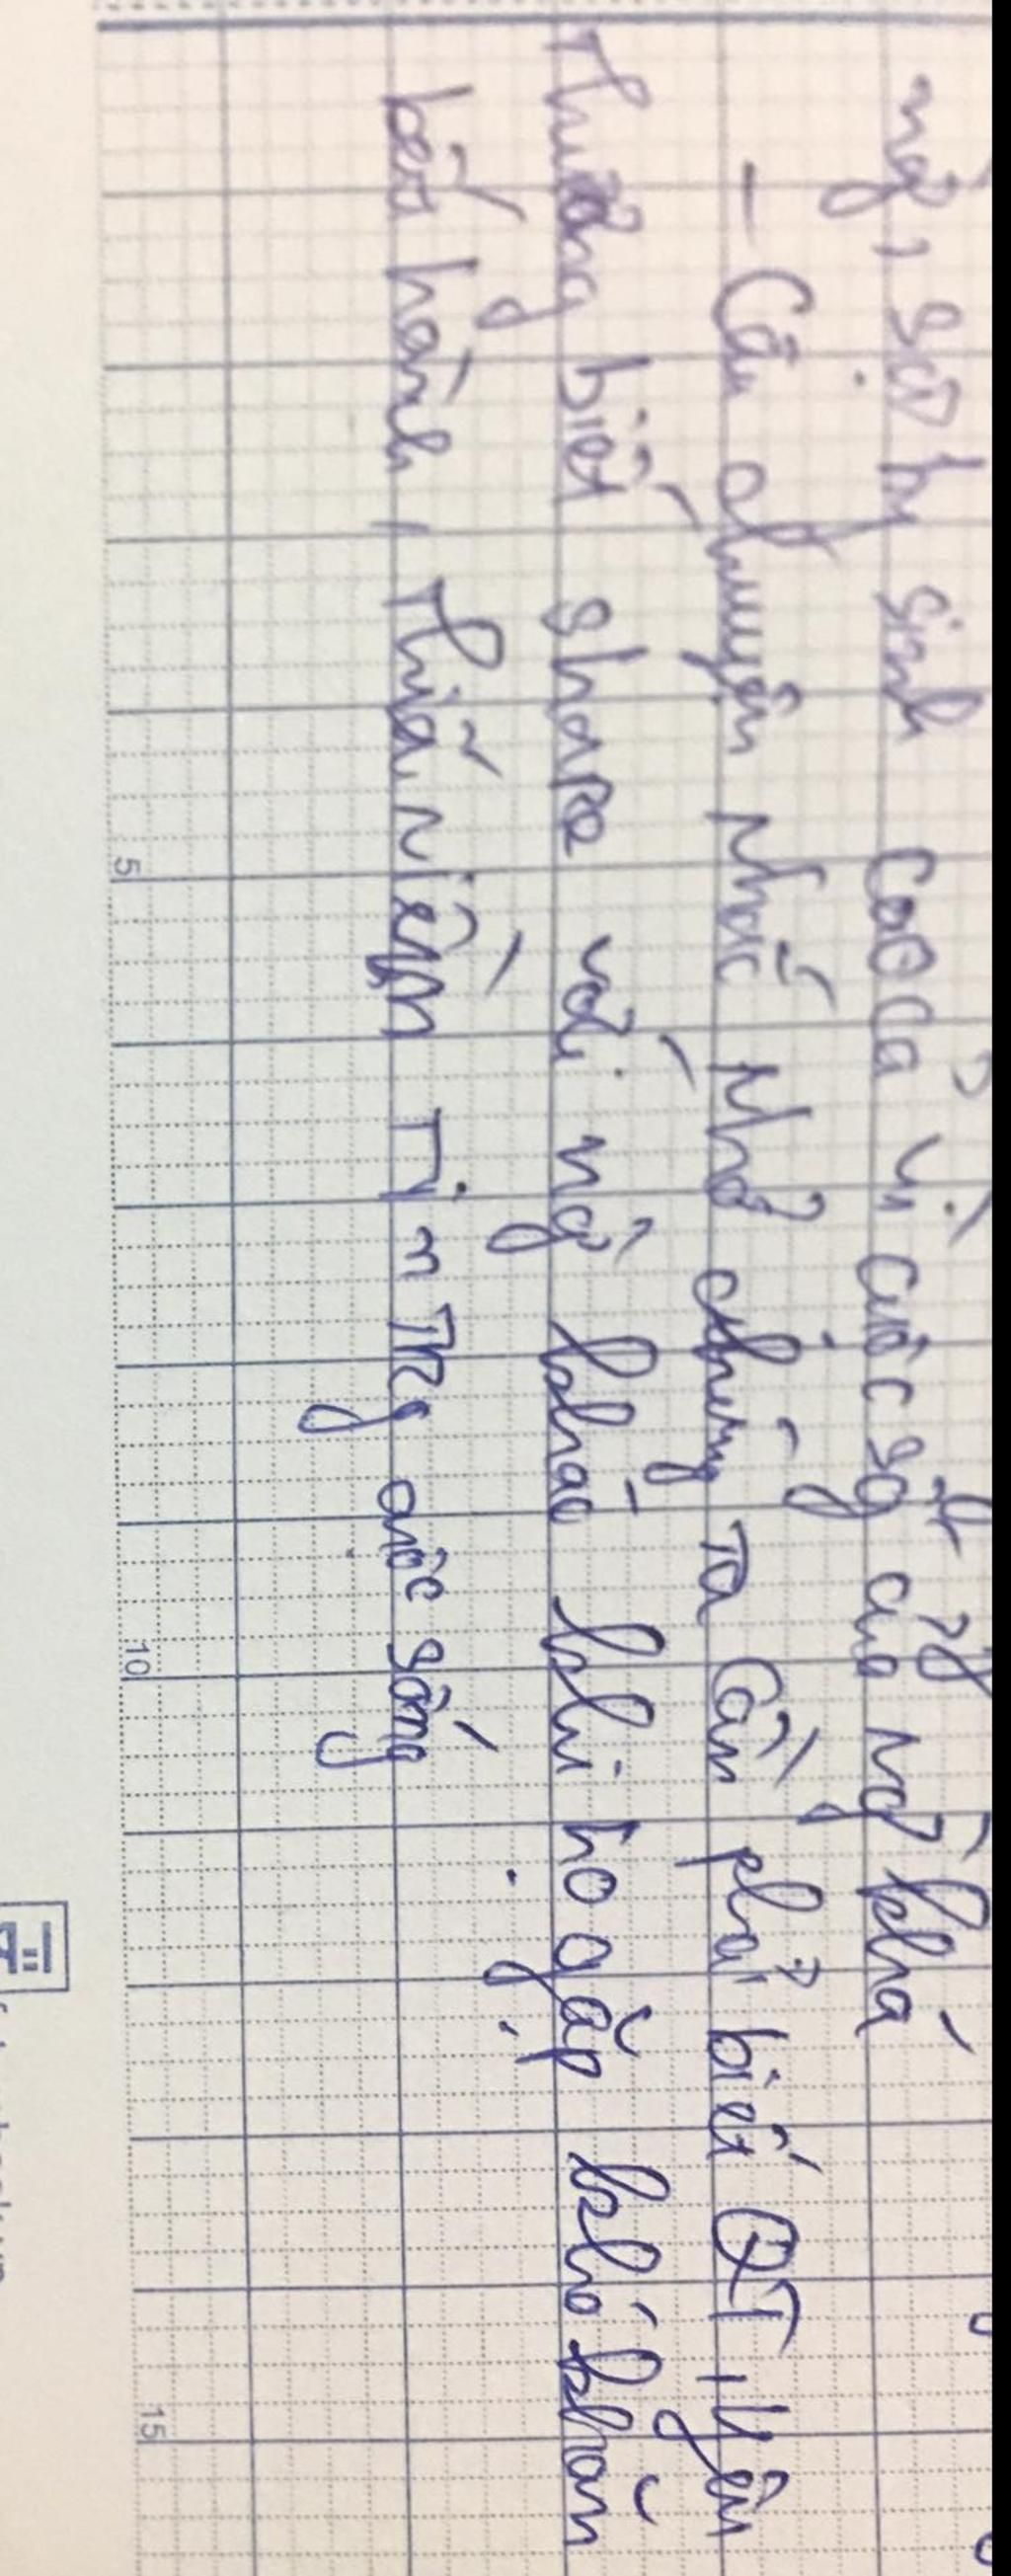 ng, sự hy sinh cao cả vì cuộc sg của ng khá
- Câu chuyện nhắc nhở chúng ta cần phải biết QT, yêu
thương biết share với ng khác khi họ gặp khó khăn
bất hạnh, thắp niềm tin trg cuộc sống
5
10
15